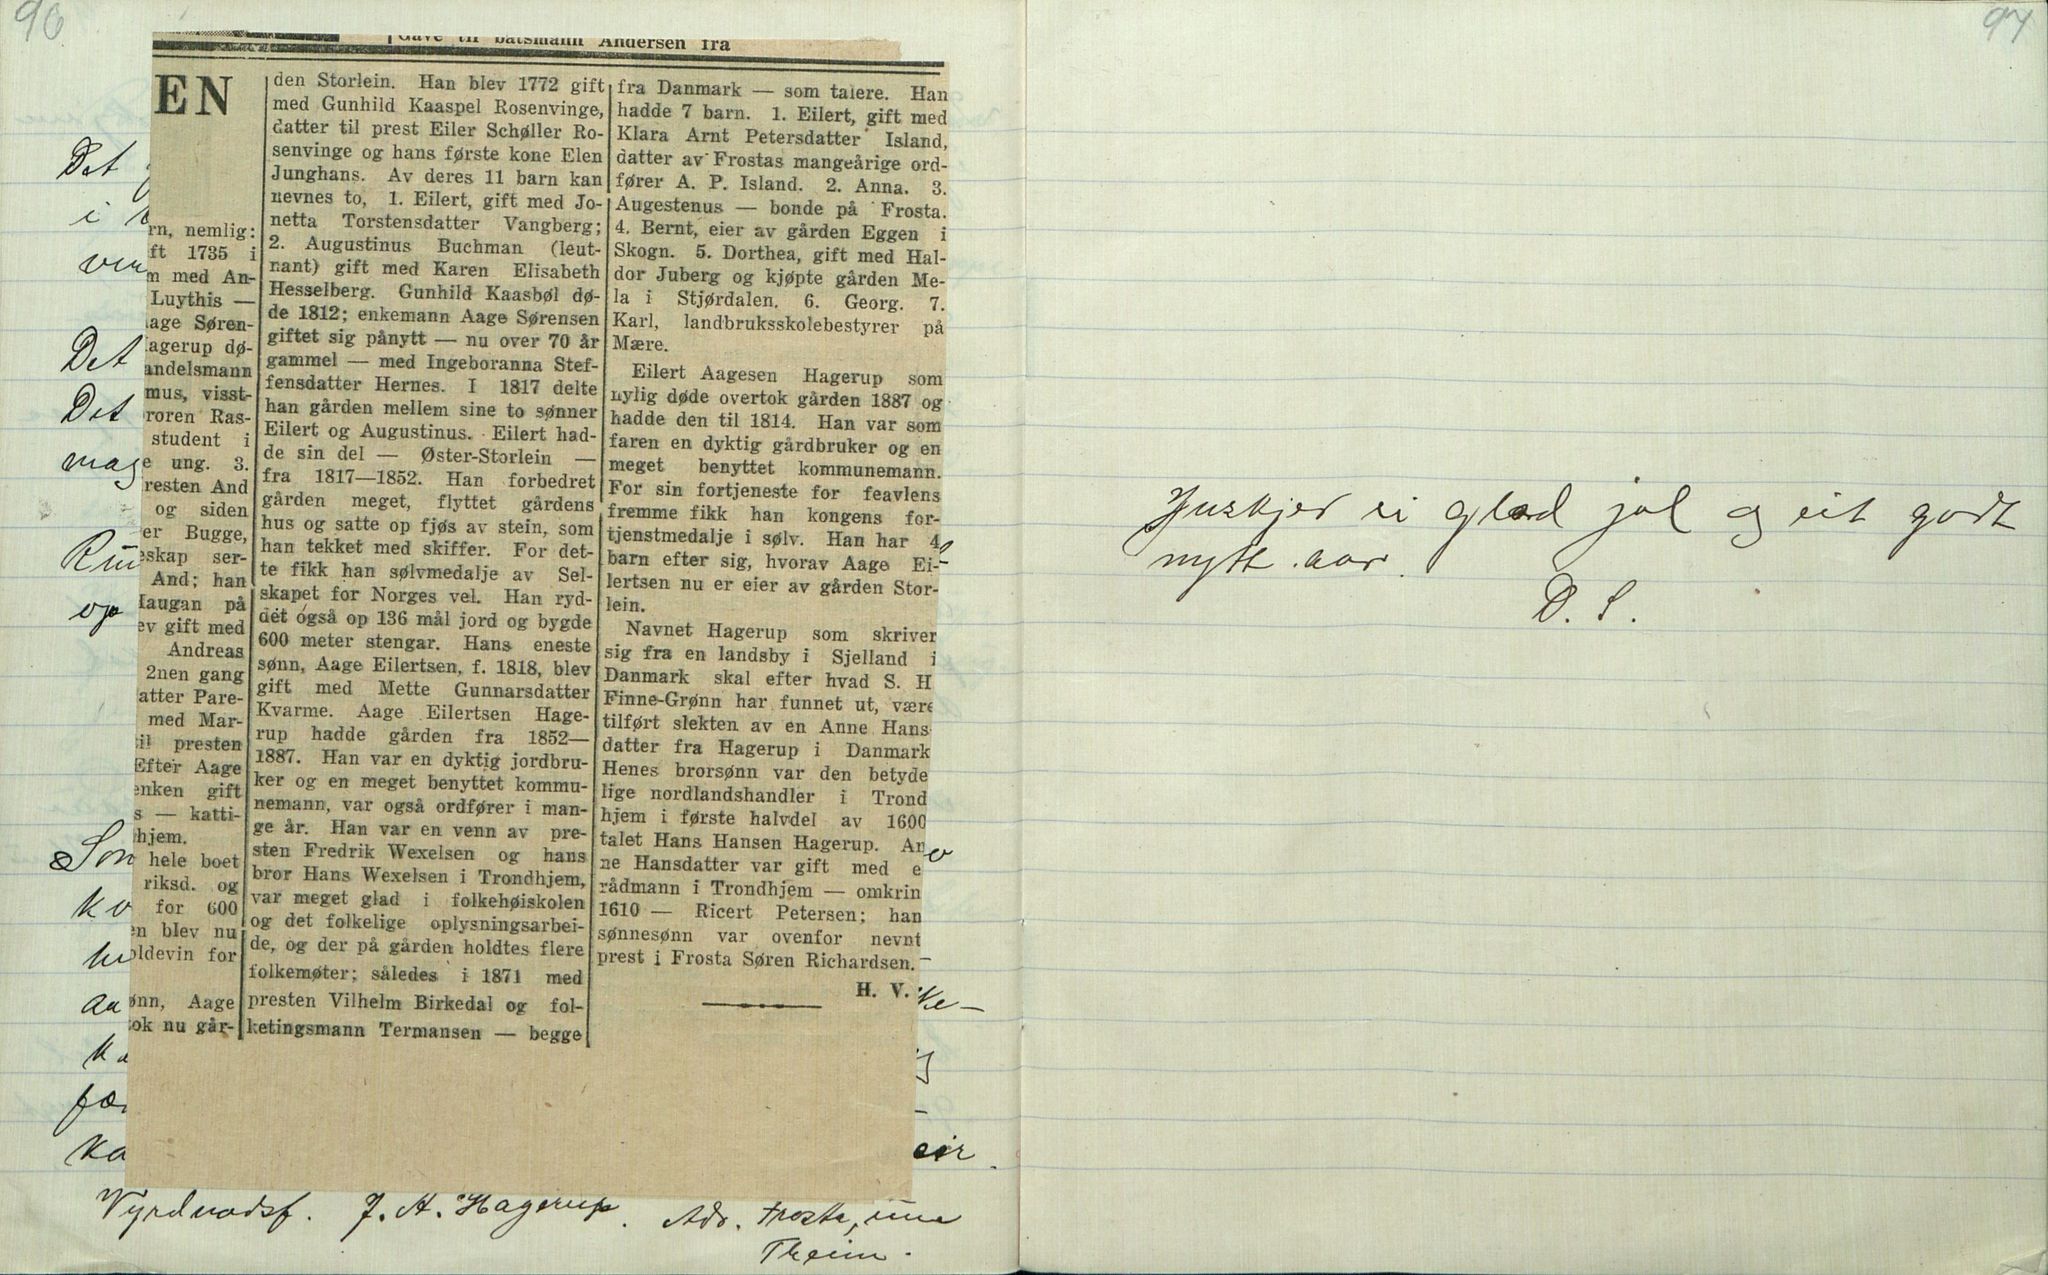 96
Gave til båtsmann Andersen fra
EN
rn, nemlig:
ft 1735 i
m med An-
Luythis —
age Søren-
agerup dø-
andelsmann
mus, visst-
roren Ras-
student i
e ung. 3.
resten And
og siden
er Bugge,
eskap ser-
And; han
Haugan på
ev gift med
Andreas
2nen gang
atter Pare-
med Mar-
il presten
Efter Aage
enken gift
s — katti-
hjem.
hele boet
riksd. og
for 600
en blev nu
oldevin for
ønn, Aage
tok nu går-
den Storlein. Han blev 1772 gift
med Gunhild Kaaspel Rosenvinge,
datter til prest Eiler Schøller Ro-
senvinge og hans første kone Elen
Junghans. Av deres 11 barn kan
nevnes to, 1. Eilert, gift med Jo-
netta Torstensdatter Vangberg;
2. Augustinus Buchman (leut-
nant) gift med Karen Elisabeth
Hesselberg. Gunhild Kaasbøl dø-
de 1812; enkemann Aage Sørensen
giftet sig pånytt — nu over 70 år
gammel — med Ingeboranna Stef-
fensdatter Hernes. I 1817 delte
han gården mellem sine to sønner
Eilert og Augustinus. Eilert had-
de sin del — Øster-Storlein —
fra 1817—1852. Han forbedret
gården meget, flyttet gårdens
hus og satte op fjøs av stein, som
han tekket med skiffer. For det-
te fikk han sølvmedalje av Sel-
skapet for Norges vel. Han ryd-
det også op 136 mål jord og bygde
600 meter stengar. Hans eneste
sønn, Aage Eilertsen, f. 1818, blev
gift med Mette Gunnarsdatter
Kvarme. Aage Eilertsen Hage-
rup hadde gården fra 1852—
1887. Han var en dyktig jordbru-
ker og en meget benyttet kommu-
nemann, var også ordfører i man-
ge år. Han var en venn av pre-
sten Fredrik Wexelsen og hans
bror Hans Wexelsen i Trondhjem,
var meget glad i folkehøiskolen
og det folkelige oplysningsarbei-
de, og der på gården holdtes flere
folkemøter; således i 1871 med
presten Vilhelm Birkedal og fol-
ketingsmann Termansen — begge
fra Danmark — som talere. Han
hadde 7 barn. 1. Eilert, gift med
Klara Arnt Petersdatter Island,
datter av Frostas mangeårige ord-
fører A. P. Island. 2. Anna. 3.
Augestenus — bonde på Frosta.
4. Bernt, eier av gården Eggen i
Skogn. 5. Dorthea, gift med Hal-
dor Juberg og kjøpte gården Me-
la i Stjørdalen. 6. Georg. 7.
Karl, landbruksskolebestyrer på
Mære.
Eilert Aagesen Hagerup som
nylig døde overtok gården 1887 og
hadde den til 1814. Han var som
faren en dyktig gårdbruker og en
meget benyttet kommunemann.
For sin fortjeneste for feavlens
fremme fikk han kongens for-
tjenstmedalje i sølv. Han har 4
barn efter sig, hvorav Aage Ei-
lertsen nu er eier av gården Stor-
lein.
Navnet Hagerup som skriver
sig fra en landsby i Sjelland i
Danmark skal efter hvad S. H
Finne-Grønn har funnet ut, være
tilført slekten av en Anne Hans-
datter fra Hagerup i Danmark
Henes brorsønn var den betyde
lige nordlandshandler i Trond
hjem i første halvdel av 1600
talet Hans Hansen Hagerup. An
ne Hansdatter var gift med e
rådmann i Trondhjem — omkrin
1610 — Ricert Petersen; han
sønnesønn var ovenfor nevnt
prest i Frosta Søren Richardsen.
H. V.
Det
i
Det
Det
mag
op
Son
ko
aa
ke-
ka
fæ
ka
eir.
Vyrdnadsf. J. A. Hagerup. Adr. Frosta,
Theim.
97
Ynskjer ei glad jol og eit godt
nytt aar.
D. S.